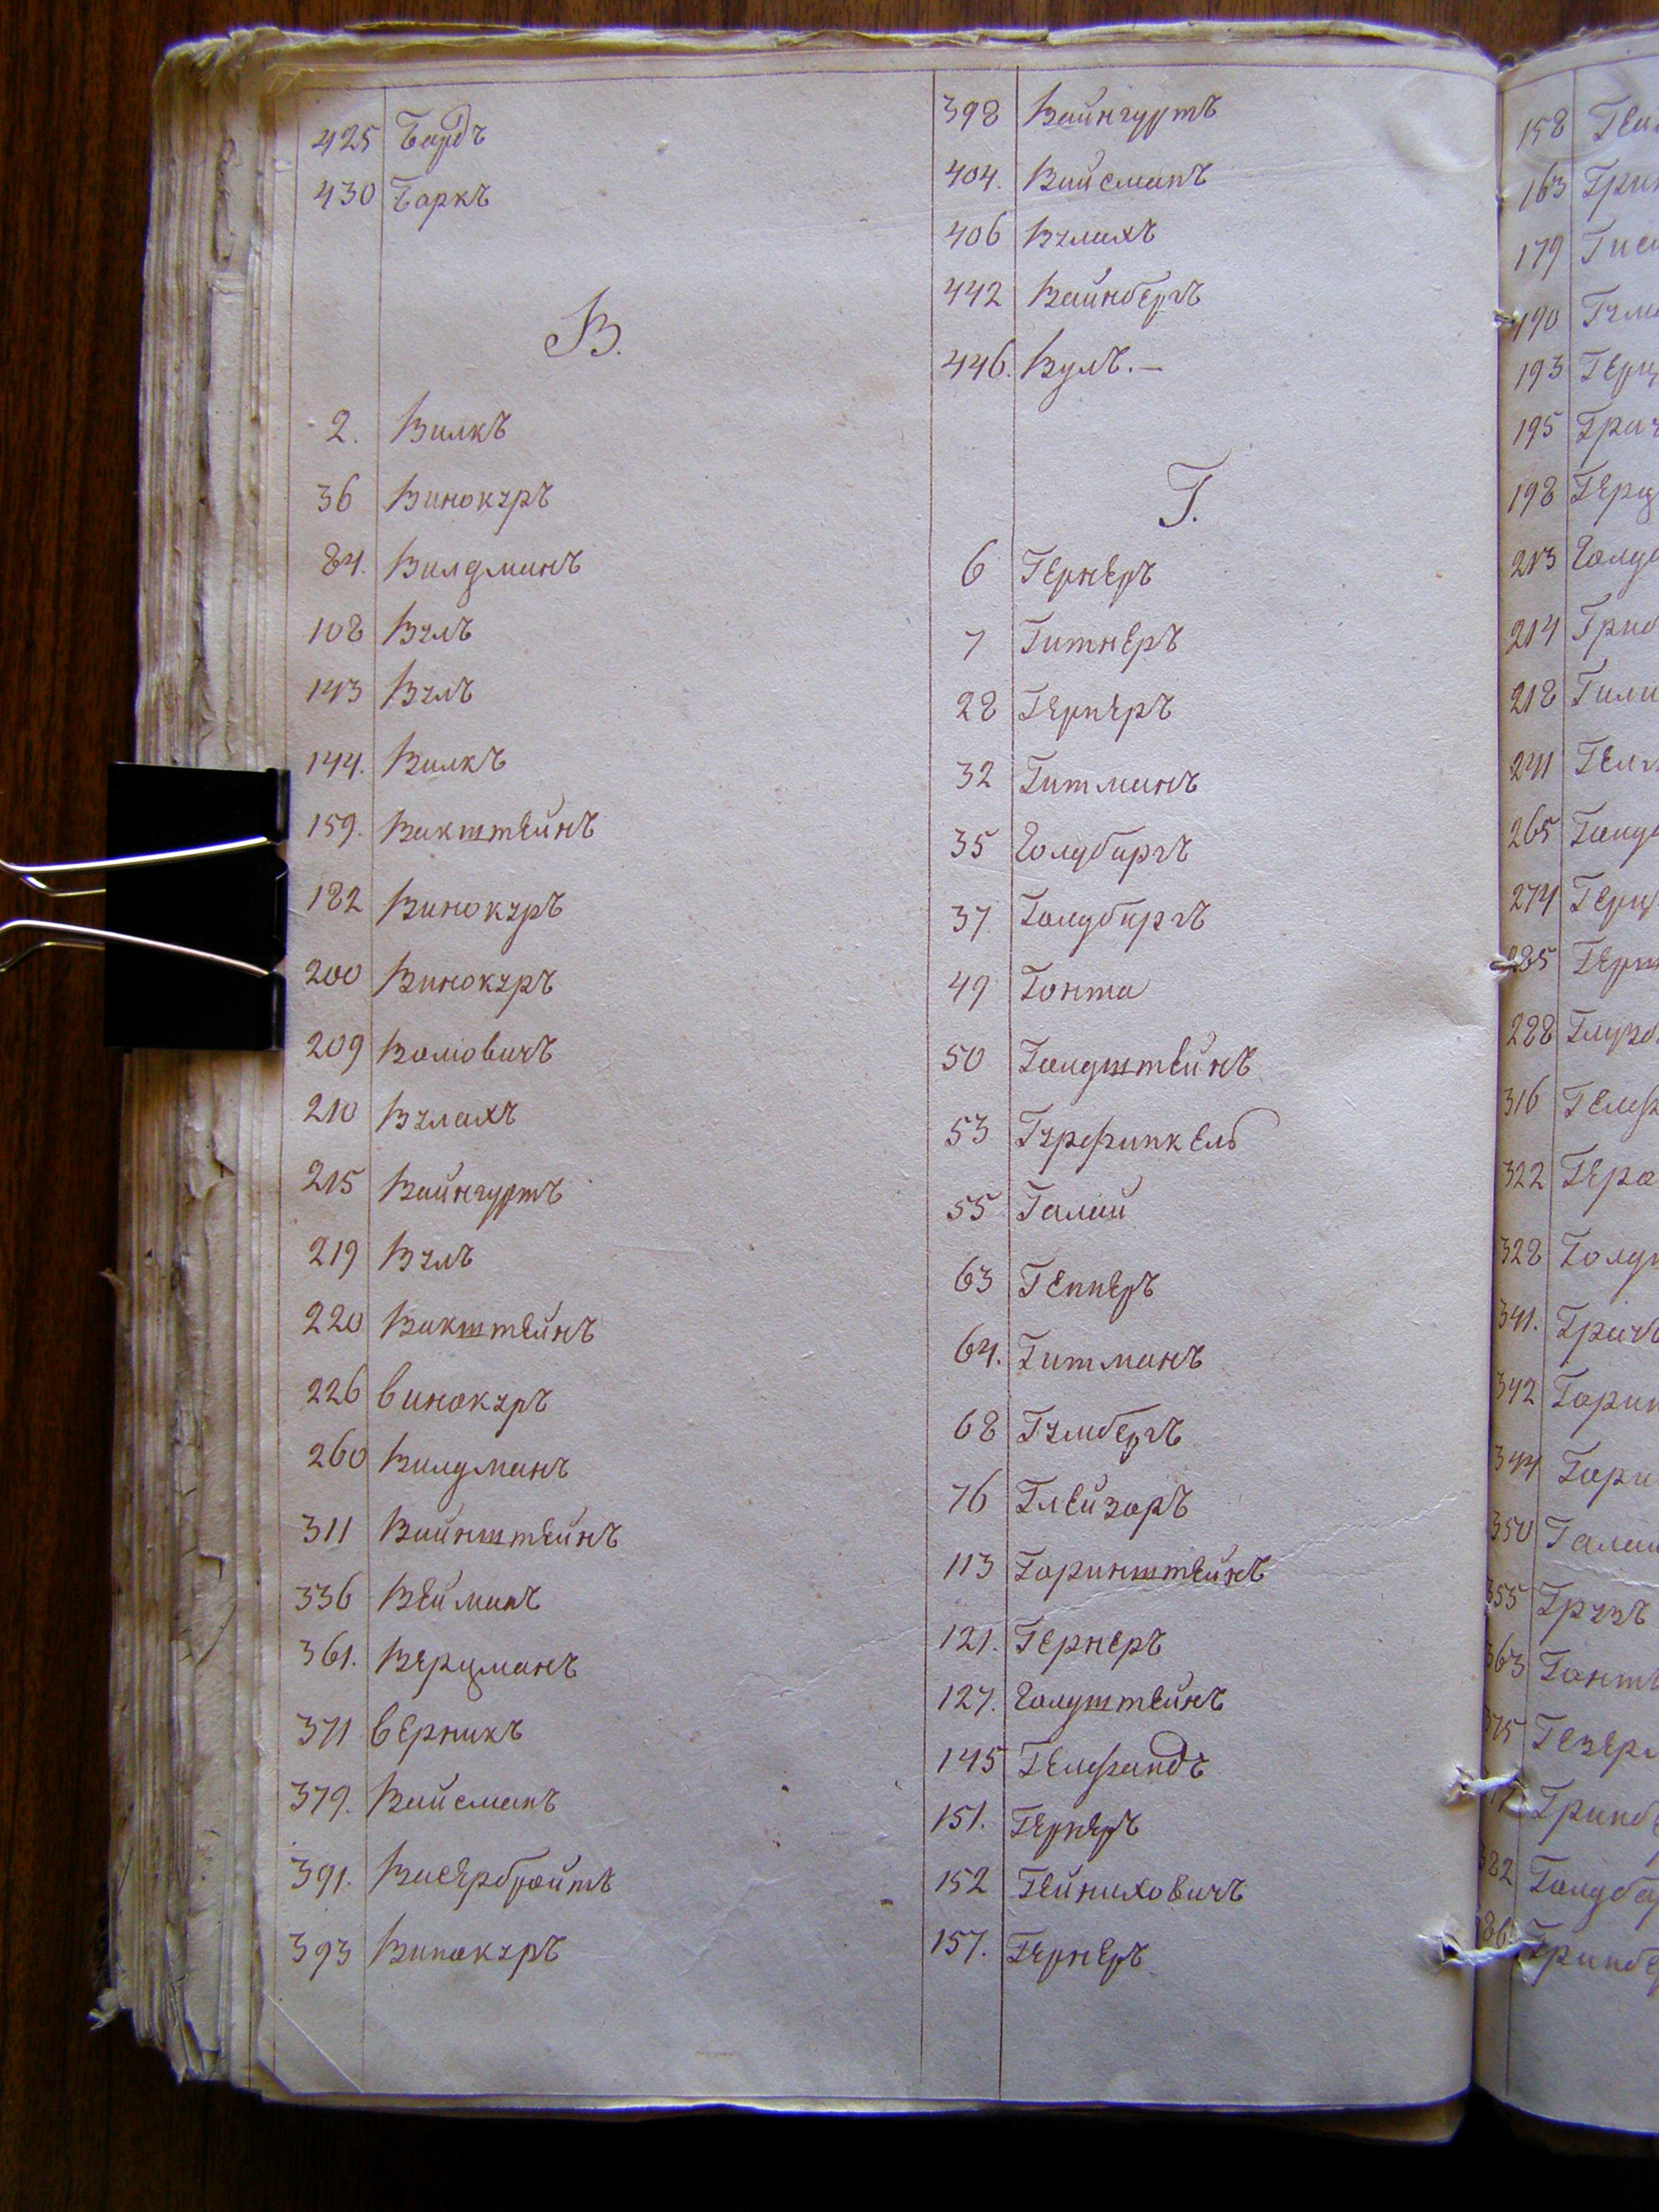 425 Бардъ
430 Баркъ
В.
2. Вилкъ
36 Винокуръ
84. Вилдманъ
108 Вулъ
143 Вулъ
144. Вилкъ
159. Вакштейнъ
182 Винокуръ
200 Винокуръ
209 Воловичъ
210 Вулахъ
215 Вайнгуртъ
219 Вулъ
220 Вакштейнъ
226 винокуръ
260 Вилдманъ
311 Вайнштейнъ
336 Вейманъ
361. Верцманъ
371 верникъ
379. Вайсманъ
391. Васербройтъ
393 Винокуръ
398 Вайнгуртъ
404. Вайсманъ
406 Вулахъ
442 Вайнбергъ
446. Вулъ. —
Г.
6 Гернеръ
7 Гитнеръ
28 Гернеръ
32 Гитманъ
35 Голдбаргъ
37 Голдбаргъ
49 Гонта
50 Голдштейнъ
53 Гурфинкель
55 Галай
63 Гепнеръ
64. Гитманъ
68 Гумбергъ
76 Глейзоръ
113 Горинштейнъ
121. Гернеръ
127. Голдштейнъ
145 Гелфандъ
151. Гернеръ
152 Гейниховичъ
157. Гернеръ
158
163
179
190
193
195
198
213
214
218
241
265
274
285
288
316
322
328
341.
342
344
350
355 Грузъ
363
375
382